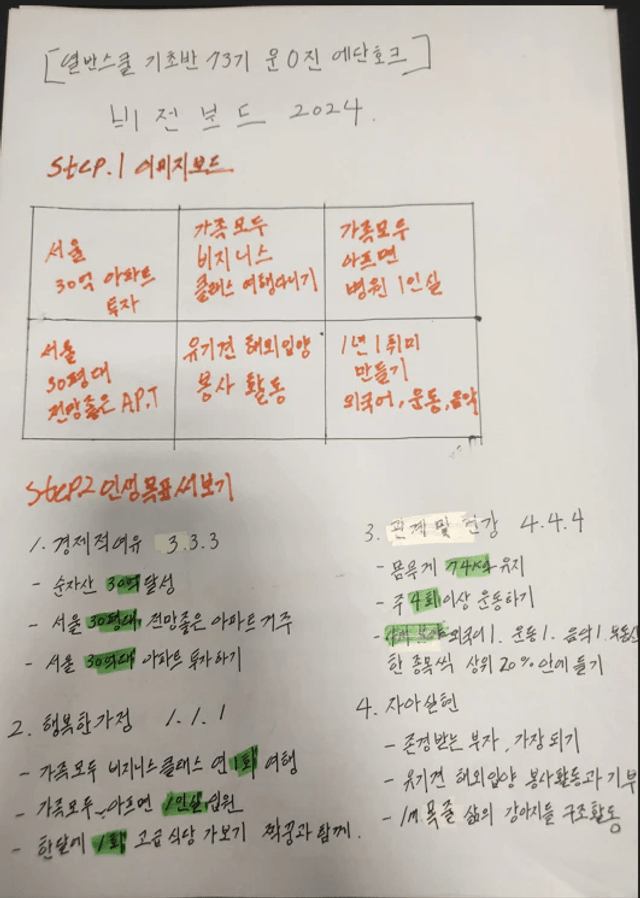 [열반스쿨 기초반 73기 운0진 에단호크]
비전보드 2024.
Step.1 이미지보드
서울
30억 아파트
투자
가족모두
비지니스
클래스 여행다니기
가족모두
아프면
병원 1인실
서울
30평대
전망좋은 A.P.T
유기견 해외입양
봉사 활동
1년 1취미
만들기
외국어, 운동, 음악
Step2 인생목표써보기
1. 경제적여유 3.3.3
- 순자산 30억 달성
- 서울 30평대, 전망좋은 아파트 거주
- 서울 30억대 아파트 투자하기
2. 행복한가정 1.1.1
- 가족모두 비지니스클래스 연 1회 여행
- 가족모두 아프면 1인실 입원
- 한달에 1회 고급식당 가보기 짝꿍과 함께.
3. 관계 및 건강 4.4.4
- 몸무게 74kg 유지
- 주 4회 이상 운동하기
- 외국어1. 운동1. 음악1. 부동산
한 종목씩 상위 20% 안에 들기
4. 자아실현
- 존경받는 부자, 가장 되기
- 유기견 해외입양 봉사활동과 기부
- 1m 목줄 삶의 강아지들 구조활동